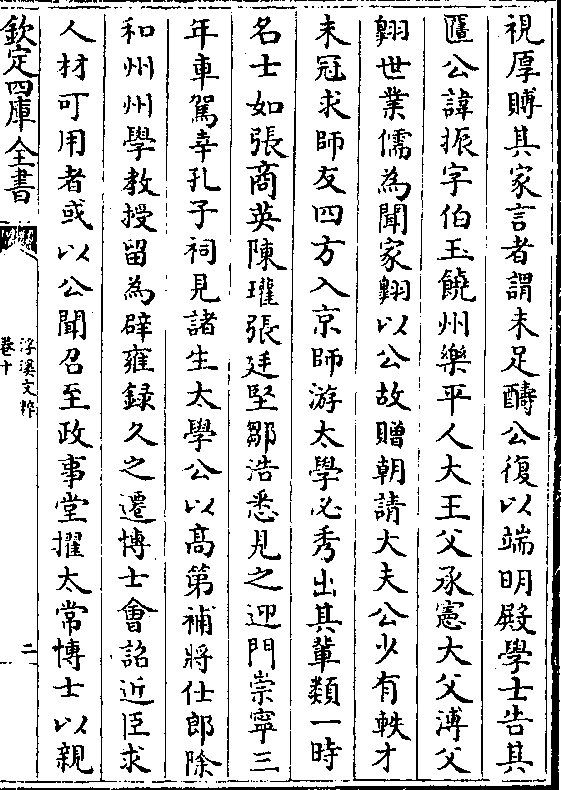 視厚賻其家言者謂未足酬公復以端明殿學士告其
匶公諱振字伯玉饒州樂平人大王父承憲大父溥父
翺世業儒為聞家翺以公故贈朝請大夫公少有軼才
未冠求師友四方入京師游太學必秀出其輩類一時
名士如張商英陳瓘張廷堅鄒浩悉見之迎門崇寧三
年車駕幸孔子祠見諸生太學公以高第補將仕郎除
和州州學教授留為辟雍録久之遷博士會詔近臣求
人材可用者或以公聞召至政事堂擢太常博士以親
欽定四庫全書
浮溪文粹
卷十
二